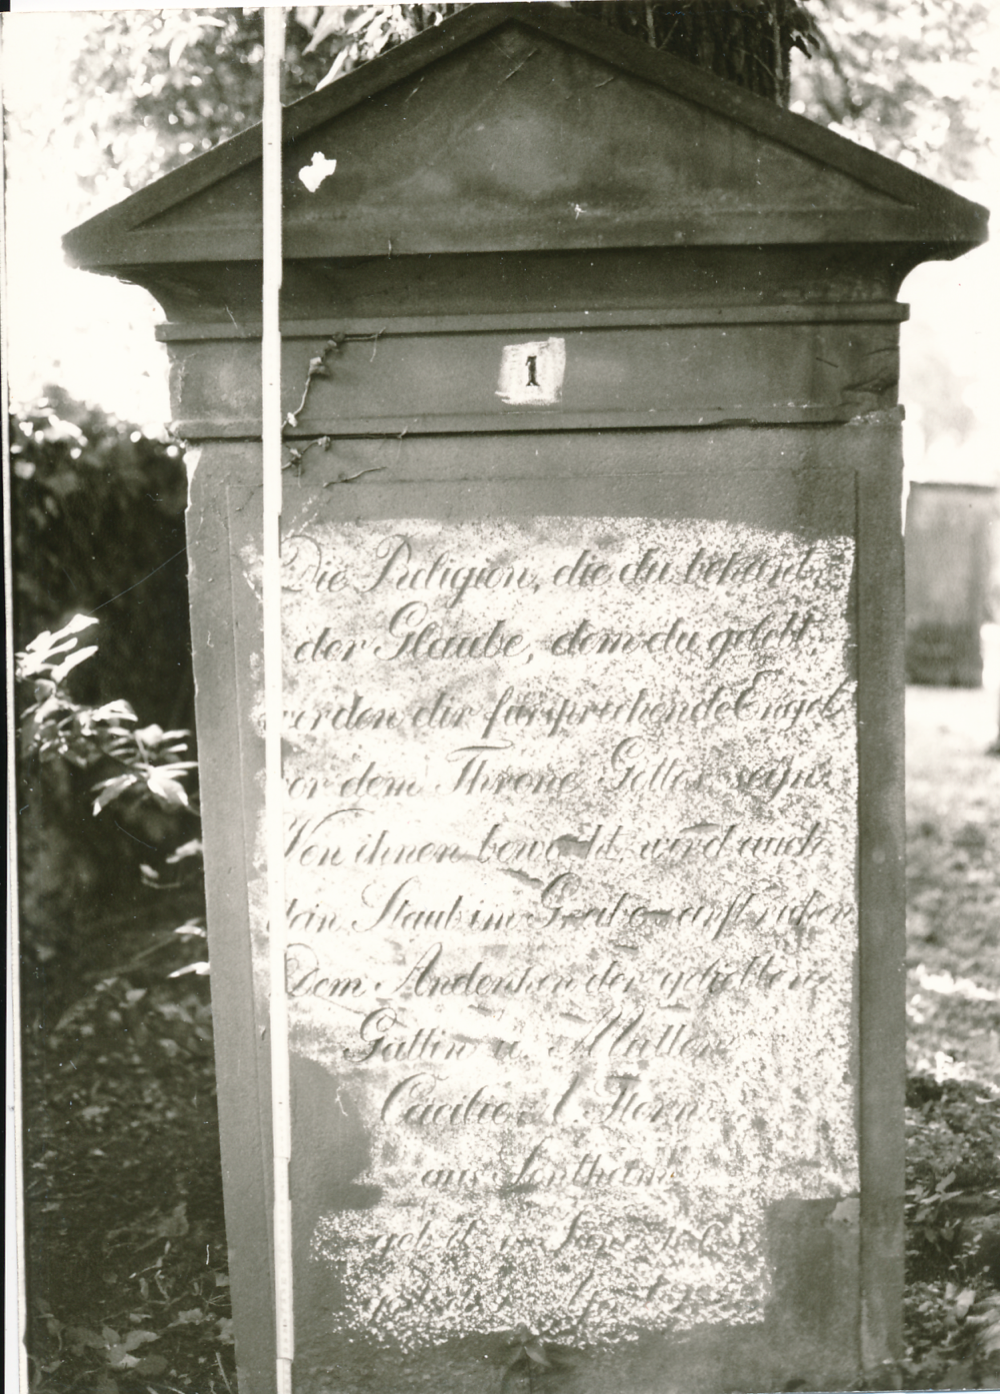 1
Die Religion, die du bekannt,
der Glaube, dem du gelebt,
werden dir fürsprechende Engel
vor dem Throne Gottes seyn.
Von ihnen bewacht, wird auch
dein Staub im Grabe sanft ruhen
Dem Andenken der geliebten
Gattin u. Mutter
Cäcilie A. Horn
aus Sontheim
geb. d.
gest. d.